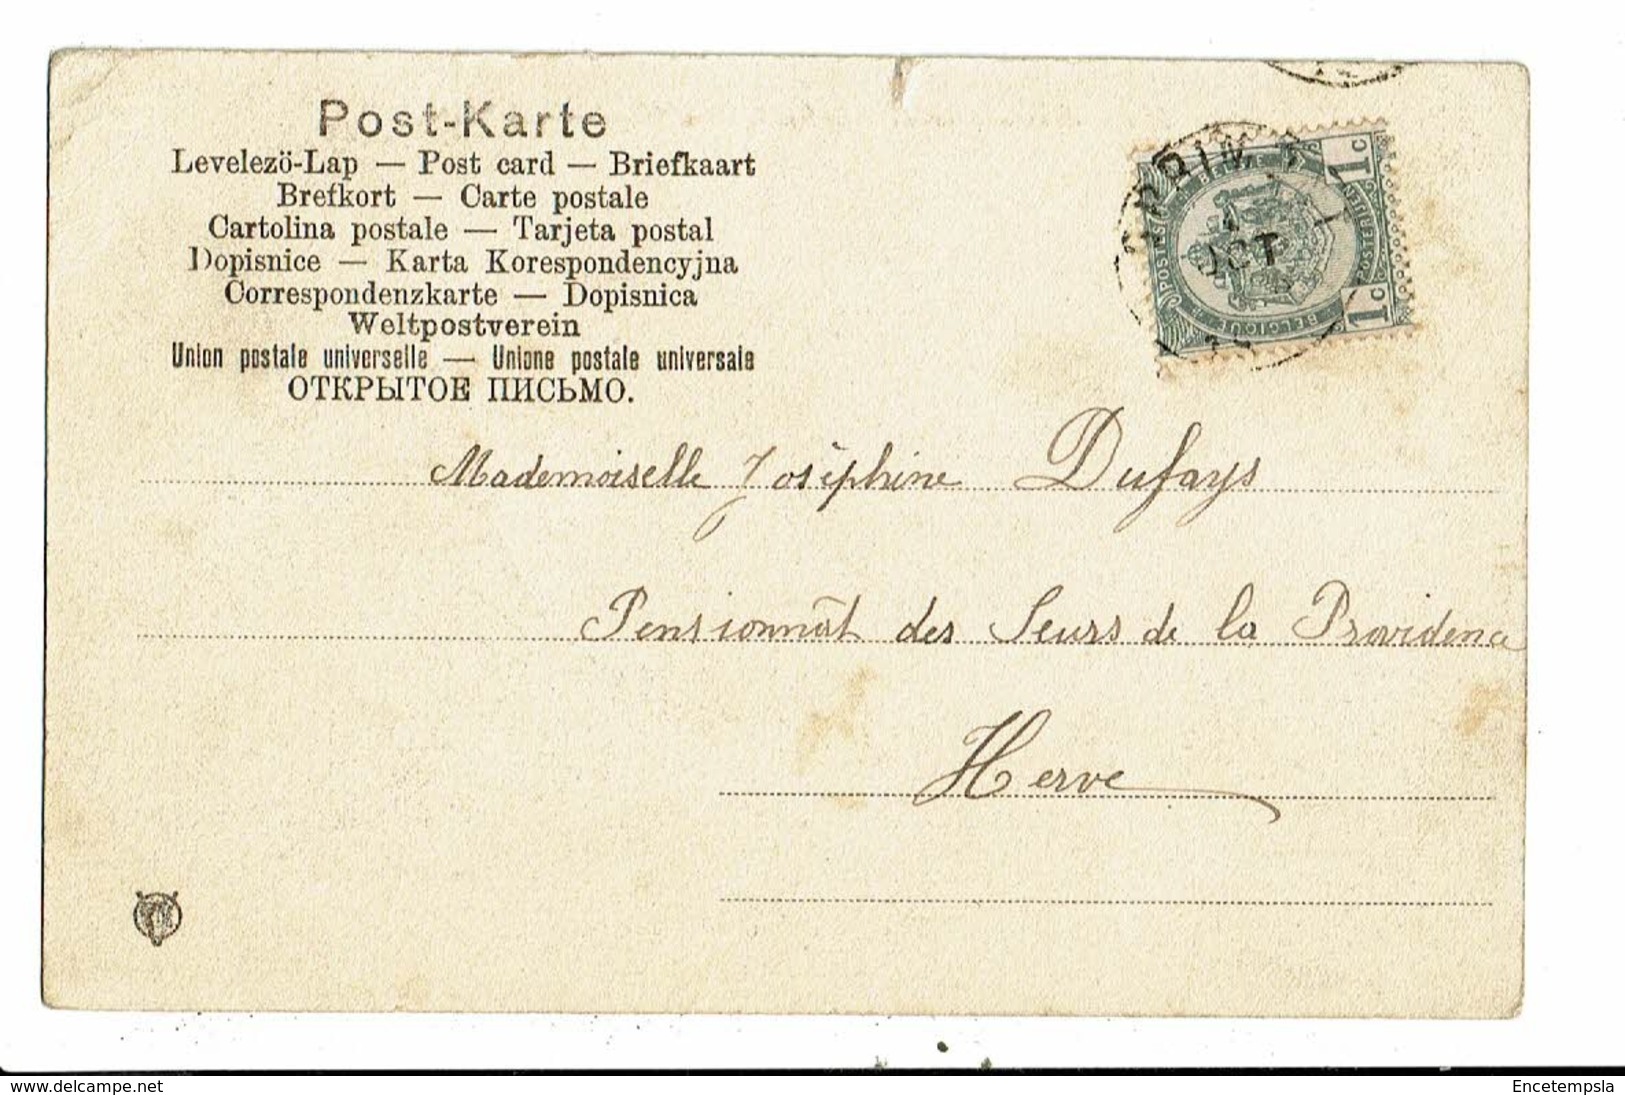 Post-Karte
Levelezö-Lap — Post card — Briefkaart
Brefkort — Carte postale
Cartolina postale — Tarjeta postal
Dopisnice — Karta Korespondencyjna
Correspondenzkarte — Dopisnica
Weltpostverein
Union postale universelle — Unione postale universale
ОТКРЫТОЕ ПИСЬМО.
1c
1c
BELGIQUE
POSTERIJEN
OCT
Mademoiselle Joséphine Dufays
Pensionnat des Seurs de la Providence
Herve
www.delcampe.net
Encetempsla